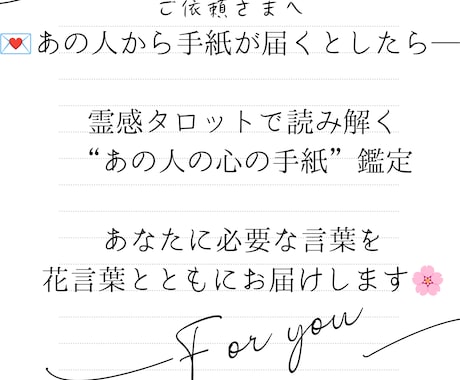 ご依頼さまへ
💌あの人から手紙が届くとしたら—
霊感タロットで読み解く
“あの人の心の手紙”鑑定
あなたに必要な言葉を
花言葉とともにお届けします🌸
For you